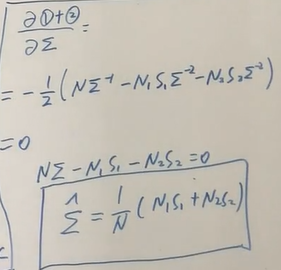 ∂①+②/∂Σ =
= -1/2 (NΣ⁻¹ - N₁S₁Σ⁻² - N₂S₂Σ⁻²)
= 0
NΣ - N₁S₁ - N₂S₂ = 0
Σ̂ = 1/N (N₁S₁ + N₂S₂)